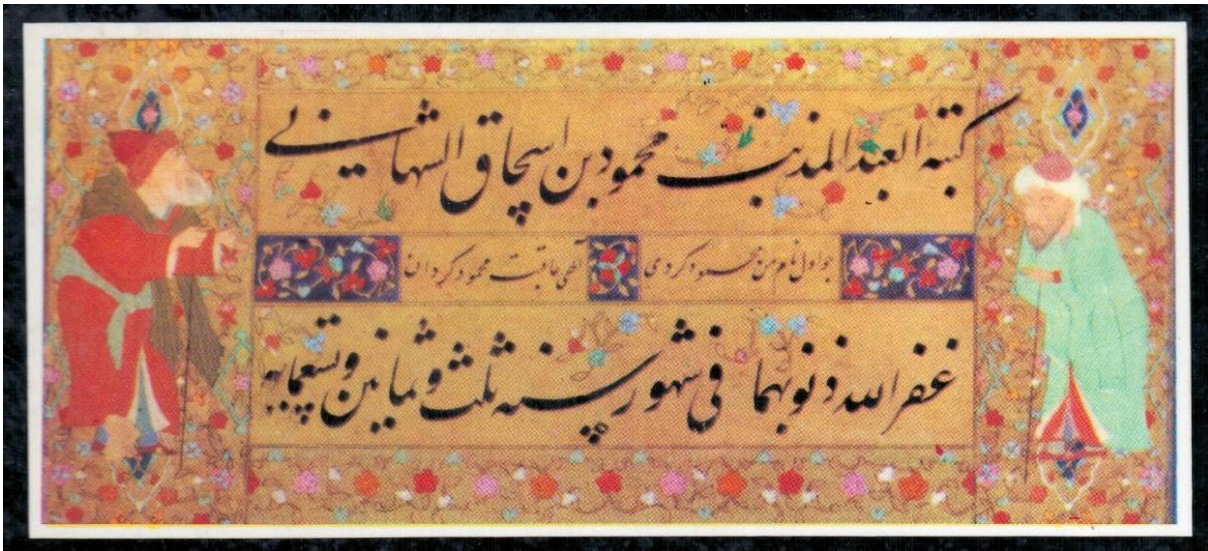 كتبه العبد المذنب محمود بن اسحاق الشهابی
جو اول نام من محمود کردی الهی عاقبت محمود کردان
غفر الله ذنوبهما فی شهور سنه ثلث و ثمانین و تسعمایه